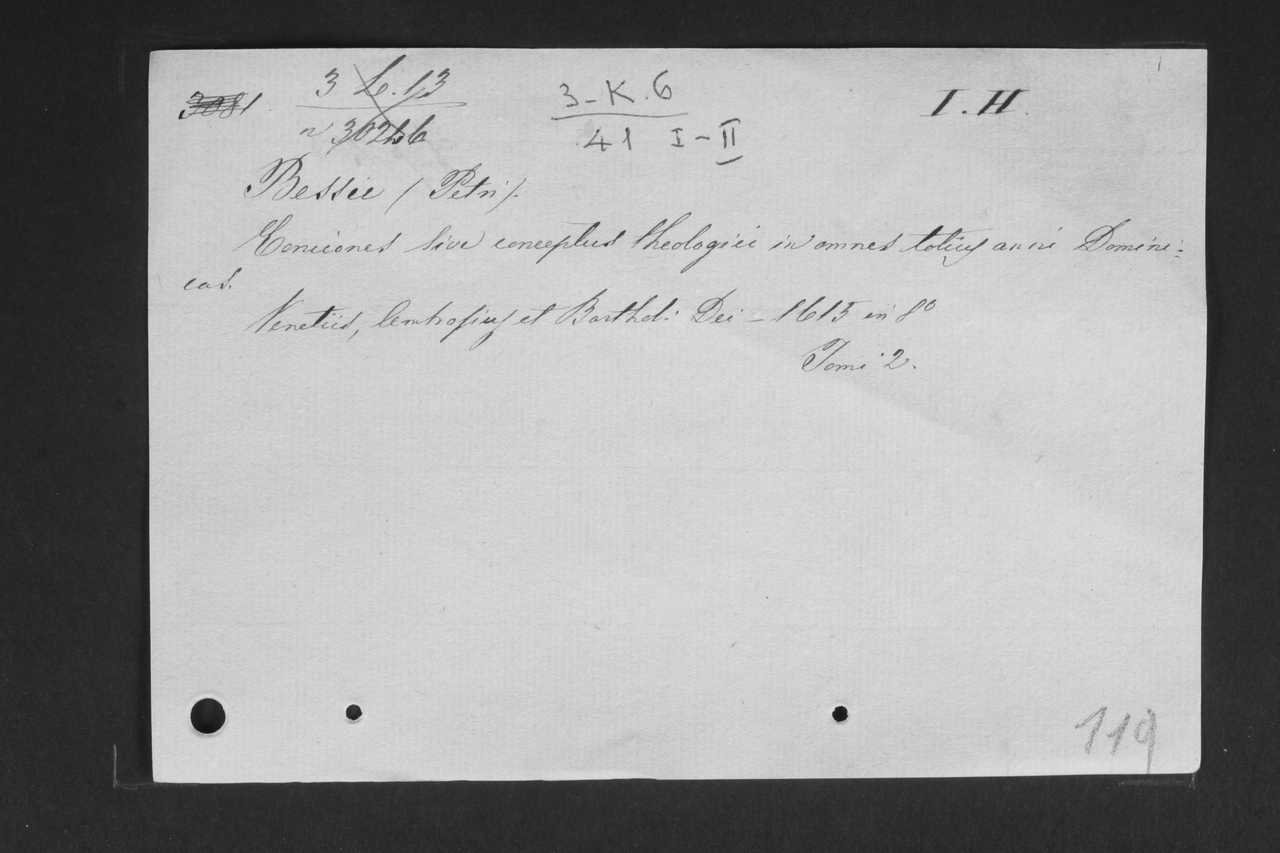 3081.
3 L. 13
n 30246
3-K.6
41 I-II
I. H.
Bessée / Petri /.
Conciones sive conceptus theologici in omnes totius anni Domini:
cas.
Venetiis, Ambrosius et Barthol: Dei - 1615 in 8º
Tomi 2.
119